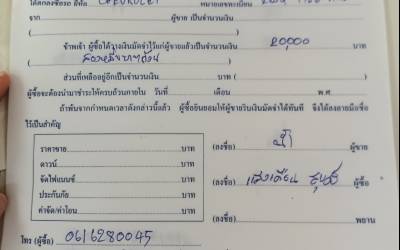 ได้ตกลงซื้อรถ ยี่ห้อ CHEVROLET หมายเลขทะเบียน
จาก ผู้ขาย เป็นจำนวนเงิน
( )
ข้าพเจ้า ผู้ซื้อได้วางเงินมัดจำไว้แก่ผู้ขายแล้วเป็นจำนวนเงิน 20,000 บาท
( สองหมื่นบาทถ้วน )
ส่วนที่เหลืออยู่อีกเป็นจำนวนเงิน บาท ( )
ผู้ซื้อจะต้องนำมาชำระให้ครบถ้วนภายใน วันที่ เดือน พ.ศ.
ถ้าพ้นจากกำหนดเวลาดังกล่าวนี้แล้ว ผู้ซื้อยินยอมให้ผู้ขายริบเงินมัดจำได้ทันที จึงได้ลงลายมือชื่อ
ไว้เป็นสำคัญ
ราคาขาย บาท
ดาวน์ บาท
จัดไฟแนนซ์ บาท
ประกันภัย บาท
ค่าจัด/ค่าโอน บาท
(ลงชื่อ) ผู้ขาย
(ลงชื่อ) แสงเดือน ผู้ซื้อ
(ลงชื่อ) พยาน
โทร (ผู้ซื้อ) 0616280045